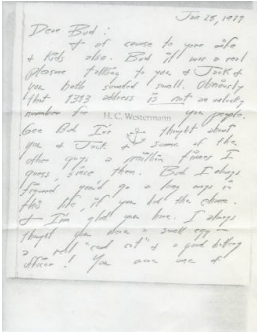 Jan 25, 1979
Dear Bud:
& of course to your wife
& Kids also. Bud it was a real
pleasure talking to you & Jack &
you both sounded small. Obviously
that 1393 address is not an
number for you people.
H. C. Westermann
Gee Bud I've thought about
you & Jack & some of the
other guys a million times I
guess, since then. Bud I always
you'd go a long ways in
this life, if you had the chance.
& I'm glad you have. I always
thought you were a swell egg &
a real "cat" & a good
officer! You were one of